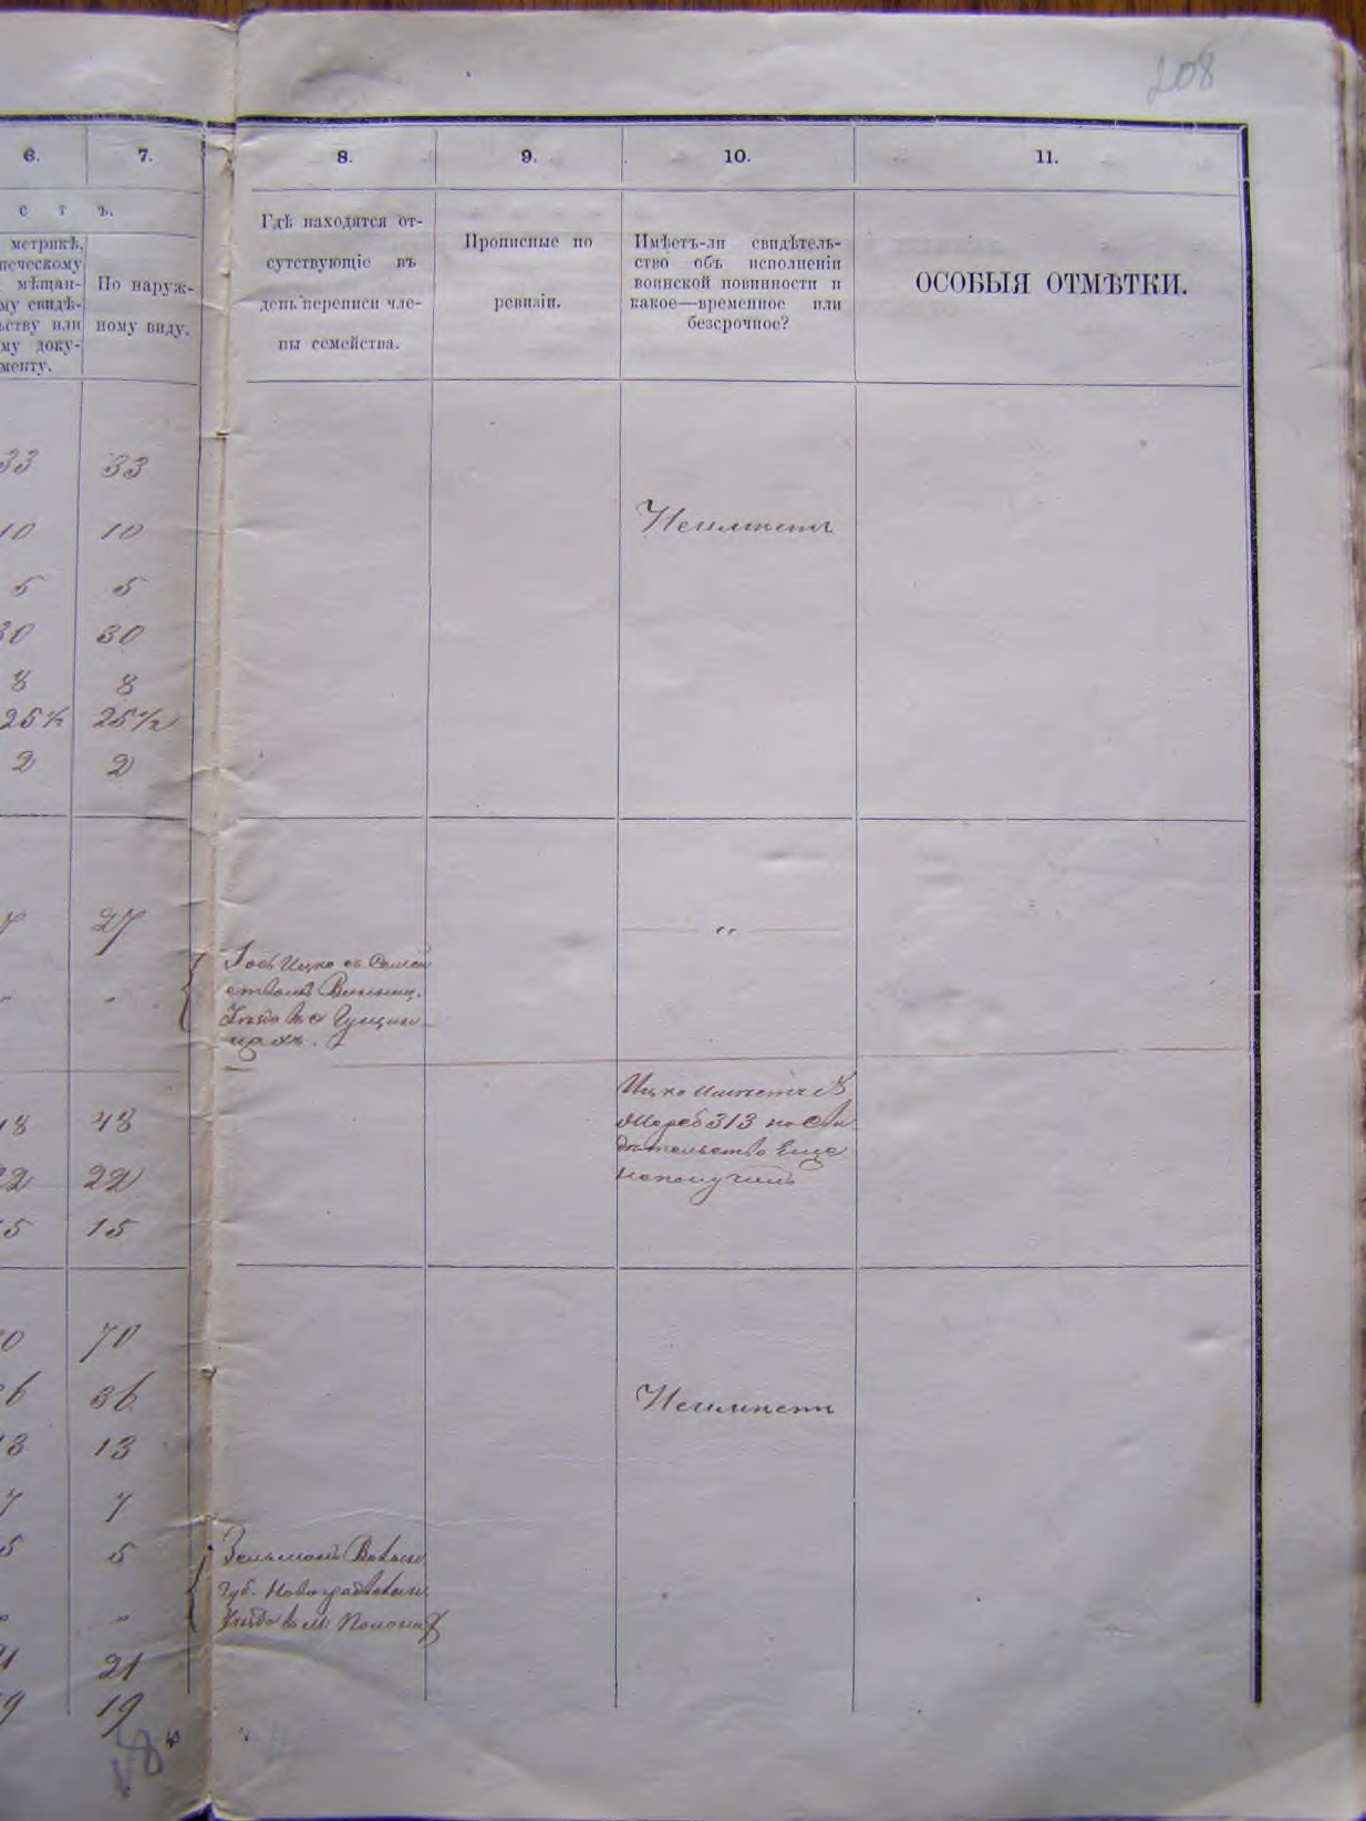 208
6. 7. 8. 9. 10. 11.
с т ъ.
метрикѣ,
мѣщан-
му свидѣ-
ьству или
му доку-
менту.
По наруж-
ному виду.
Гдѣ находятся от-
сутствующіе въ
день переписи чле-
ны семейства.
Прописные по
ревизіи.
Имѣетъ-ли свидѣтель-
ство объ исполненіи
воинской повинности и
какое—временное или
безсрочное?
ОСОБЫЯ ОТМѢТКИ.
33 33
10 10
Неимѣетъ
5 5
30 30
8 8
25½ 25½
2 2
27
"
Ицко съ Семей
ствомъ Винниц.
" Уѣзда
цахъ.
Ицко имѣетъ №
жереб 313 но Сви
дѣтельство еще
неполучилъ
18 48
22 22
5 15
0 70
6 36
Неимѣетъ
3 13
7 7
5 5
Зельманъ Волынс.
Губ. Новоградволын.
" Уѣзда въ м: Полона
21
9 19